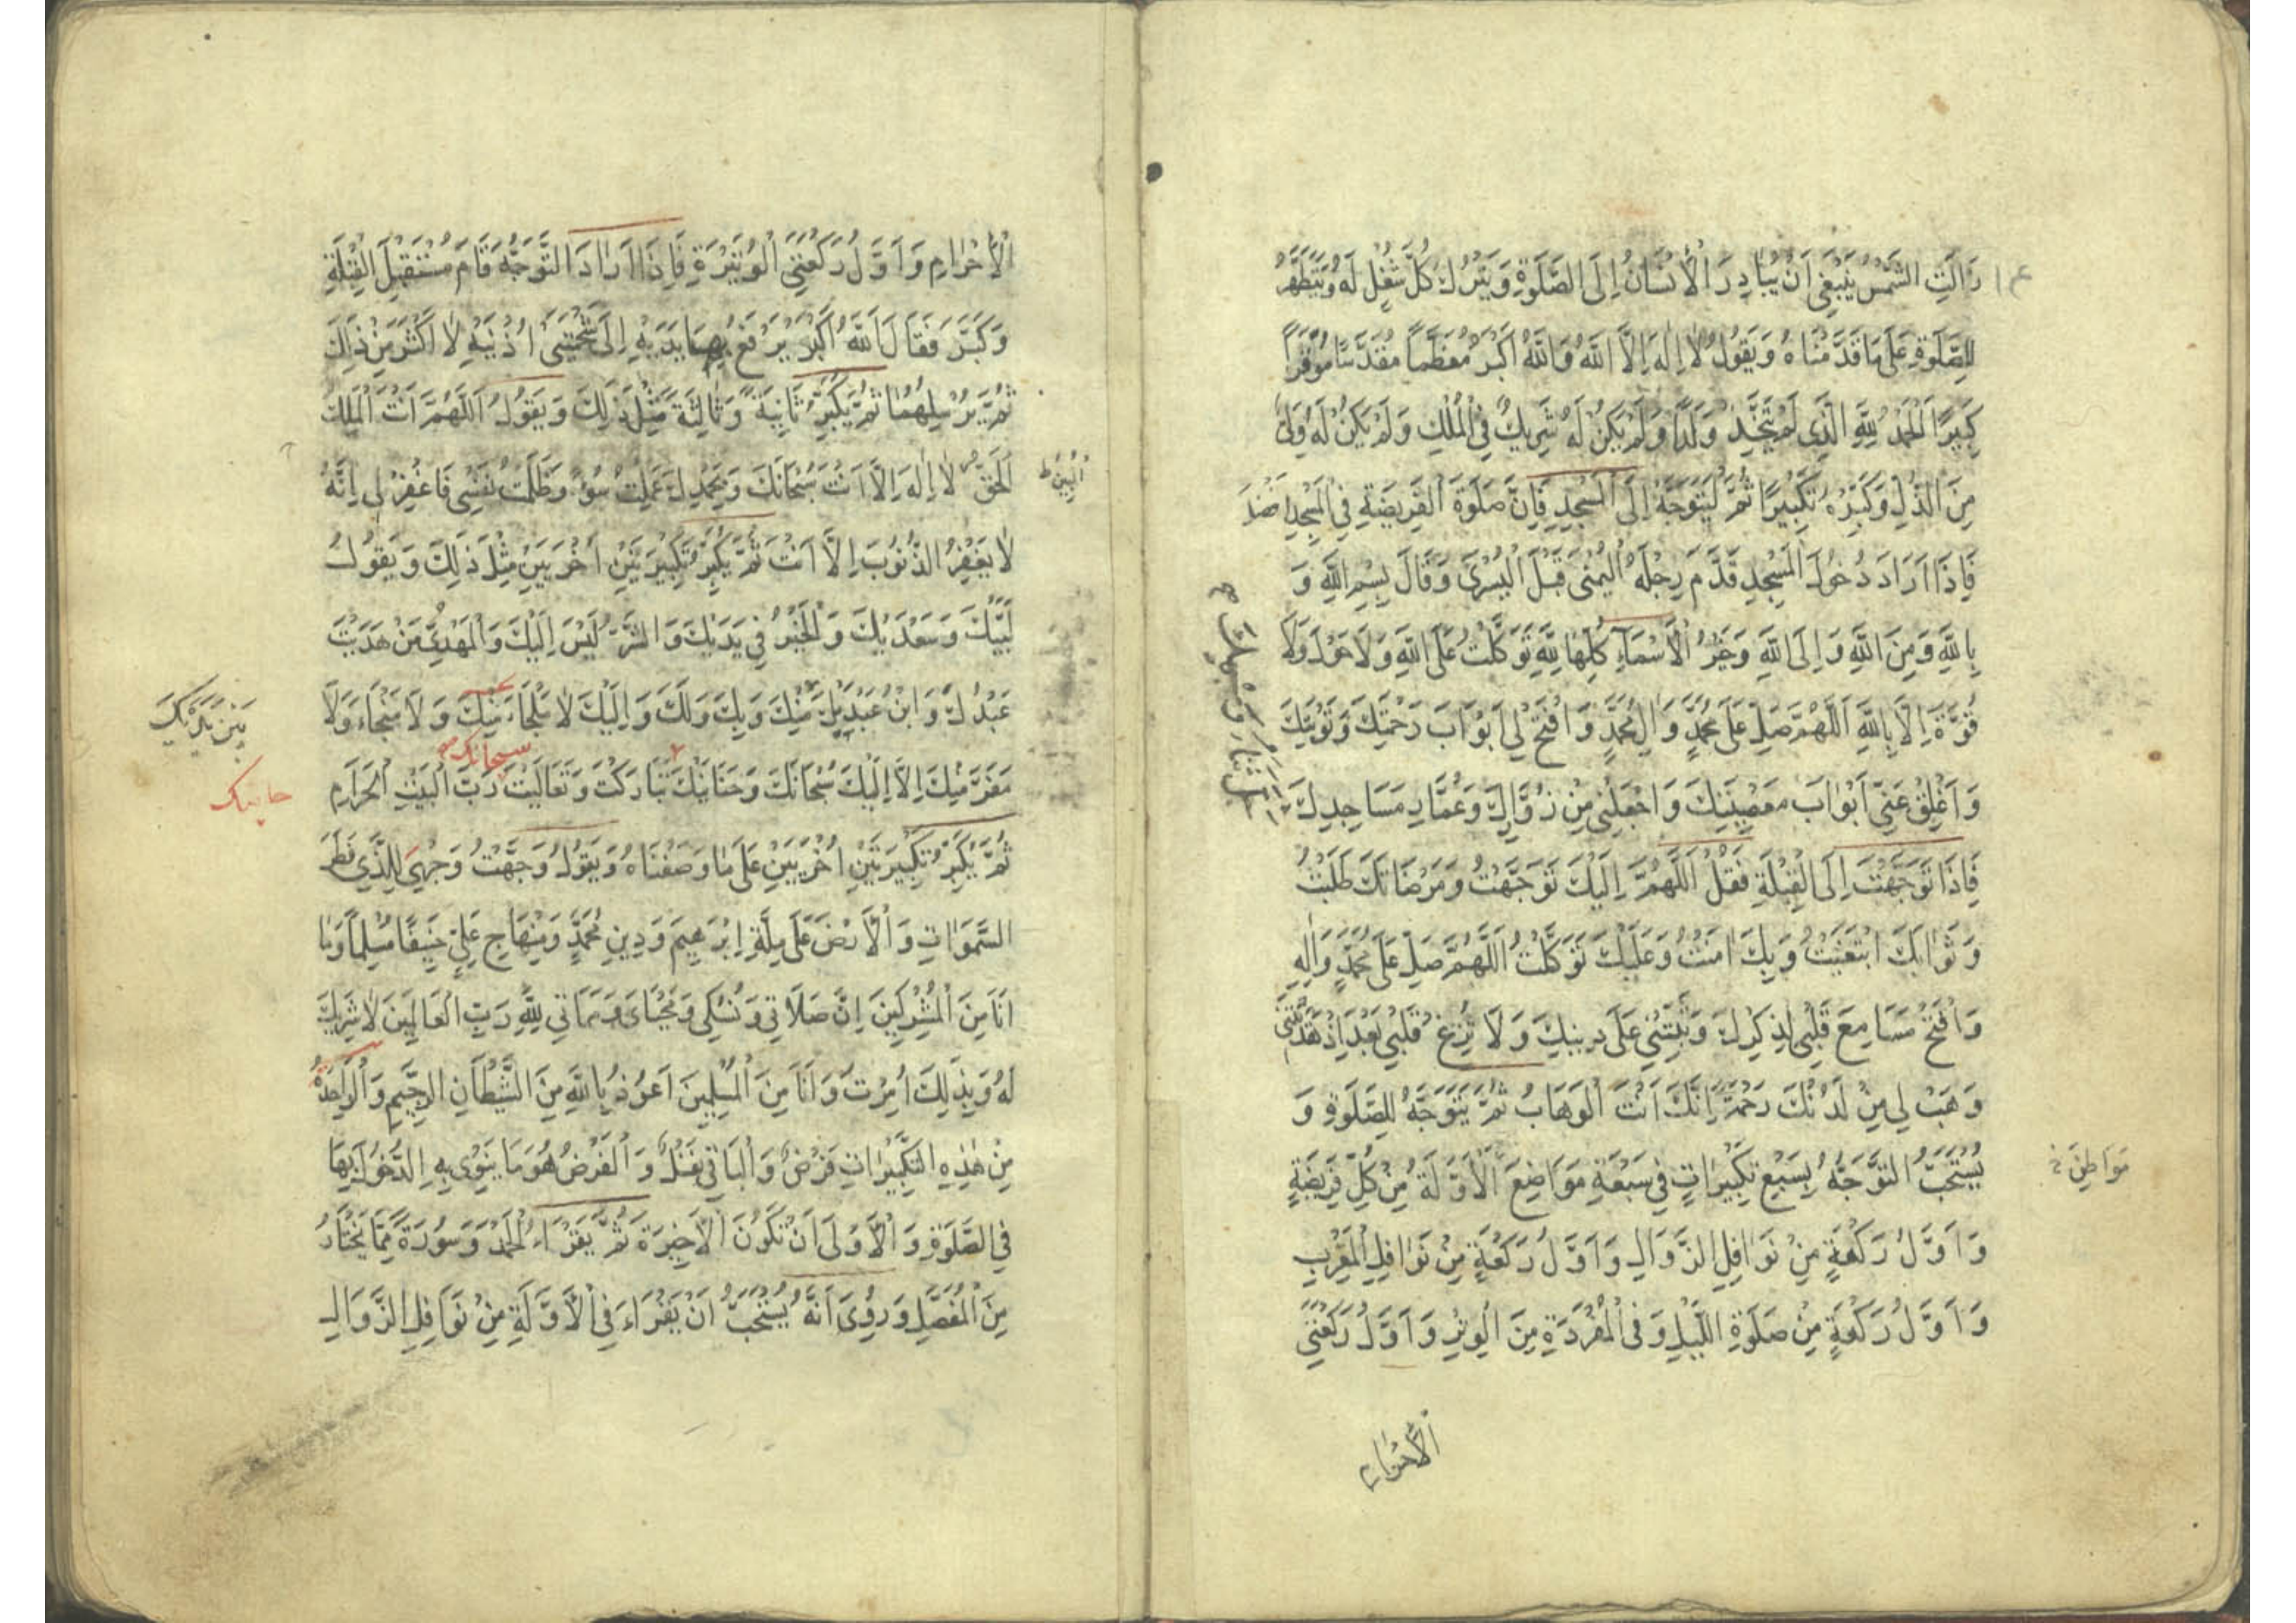 زَالَتِ الشَّمْسُ يَنْبَغِي اَنْ يُبَادِرَ الْاِنْسَانُ اِلَى الصَّلٰوةِ وَيَتْرُكَ كُلَّ شُغْلٍ لَهُ وَيَتَطَهَّرُ
لِلصَّلٰوةِ عَلٰى مَا قَدَّمْنَاهُ وَيَقُولُ لَا اِلٰهَ اِلَّا اللّٰهُ وَاللّٰهُ اَكْبَرُ مُعَظَّماً مُقَدَّسًا مُوَقَّراً
كَبِيرًا اَلْحَمْدُ لِلّٰهِ الَّذِي لَمْ يَتَّخِذْ وَلَدًا وَلَمْ يَكُنْ لَهُ شَرِيكٌ فِي الْمُلْكِ وَلَمْ يَكُنْ لَهُ وَلِيٌّ
مِنَ الذُّلِّ وَكَبِّرْهُ تَكْبِيرًا ثُمَّ لْيَتَوَجَّهْ اِلَى الْمَسْجِدِ فَاِنَّ صَلٰوةَ الْفَرِيضَةِ فِي الْمَسْجِدِ اَفْضَلُ
فَاِذَا اَرَادَ دُخُولَ الْمَسْجِدِ قَدَّمَ رِجْلَهُ الْيُمْنٰى قَبْلَ الْيُسْرٰى وَقَالَ بِسْمِ اللّٰهِ وَ
بِاللّٰهِ وَمِنَ اللّٰهِ وَاِلَى اللّٰهِ وَخَيْرُ الْاَسْمَاءِ كُلِّهَا لِلّٰهِ تَوَكَّلْتُ عَلَى اللّٰهِ وَلَا حَوْلَ وَلَا
قُوَّةَ اِلَّا بِاللّٰهِ اَللّٰهُمَّ صَلِّ عَلٰى مُحَمَّدٍ وَاٰلِ مُحَمَّدٍ وَافْتَحْ لِي اَبْوَابَ رَحْمَتِكَ وَتَوْبَتِكَ
وَاَغْلِقْ عَنِّي اَبْوَابَ مَعْصِيَتِكَ وَاجْعَلْنِي مِنْ زُوَّارِكَ وَعُمَّارِ مَسَاجِدِكَ
جَلَّ ثَنَاءُ وَجْهِكَ
فَاِذَا تَوَجَّهْتَ اِلَى الْقِبْلَةِ فَقُلْ اَللّٰهُمَّ اِلَيْكَ تَوَجَّهْتُ وَمَرْضَاتَكَ طَلَبْتُ
وَثَوَابَكَ ابْتَغَيْتُ وَبِكَ اٰمَنْتُ وَعَلَيْكَ تَوَكَّلْتُ اَللّٰهُمَّ صَلِّ عَلٰى مُحَمَّدٍ وَاٰلِهِ
وَافْتَحْ مَسَامِعَ قَلْبِي لِذِكْرِكَ وَثَبِّتْنِي عَلٰى دِينِكَ وَلَا تُزِغْ قَلْبِي بَعْدَ اِذْ هَدَيْتَنِي
وَهَبْ لِي مِنْ لَدُنْكَ رَحْمَةً اِنَّكَ اَنْتَ الْوَهَّابُ ثُمَّ يَتَوَجَّهُ لِلصَّلٰوةِ وَ
يُسْتَحَبُّ التَّوَجُّهُ بِسَبْعِ تَكْبِيرَاتٍ فِي سَبْعَةِ مَوَاضِعَ الْاَوَّلَةُ مِنْ كُلِّ فَرِيضَةٍ
مَوَاطِنَ
وَاَوَّلُ رَكْعَةٍ مِنْ نَوَافِلِ الزَّوَالِ وَاَوَّلُ رَكْعَةٍ مِنْ نَوَافِلِ الْمَغْرِبِ
وَاَوَّلُ رَكْعَةٍ مِنْ صَلٰوةِ اللَّيْلِ وَفِي الْمُفْرَدَةِ مِنَ الْوِتْرِ وَاَوَّلُ رَكْعَتَيِ
الْاِحْرَامِ
الْاِحْرَامِ وَاَوَّلُ رَكْعَتَيِ الْوُتَيْرَةِ فَاِذَا اَرَادَ التَّوَجُّهَ قَامَ مُسْتَقْبِلَ الْقِبْلَةِ
وَكَبَّرَ فَقَالَ اَللّٰهُ اَكْبَرُ يَرْفَعُ بِهَا يَدَيْهِ اِلَى شَحْمَتَيْ اُذُنَيْهِ لَا اَكْثَرَ مِنْ ذٰلِكَ
ثُمَّ يُرْسِلُهُمَا ثُمَّ يُكَبِّرُ ثَانِيَةً وَثَالِثَةً مِثْلَ ذٰلِكَ وَيَقُولُ اَللّٰهُمَّ اَنْتَ الْمَلِكُ
الْحَقُّ لَا اِلٰهَ اِلَّا اَنْتَ سُبْحَانَكَ وَبِحَمْدِكَ عَمِلْتُ سُوءً وَظَلَمْتُ نَفْسِي فَاغْفِرْ لِي اِنَّهُ
الْمُبِينُ
لَا يَغْفِرُ الذُّنُوبَ اِلَّا اَنْتَ ثُمَّ يُكَبِّرُ تَكْبِيرَتَيْنِ اُخْرَيَيْنِ مِثْلَ ذٰلِكَ وَيَقُولُ
لَبَّيْكَ وَسَعْدَيْكَ وَالْخَيْرُ فِي يَدَيْكَ وَالشَّرُّ لَيْسَ اِلَيْكَ وَالْمَهْدِيُّ مَنْ هَدَيْتَ
عَبْدُكَ وَابْنُ عَبْدَيْكَ مِنْكَ وَبِكَ وَلَكَ وَاِلَيْكَ لَا مَلْجَاءَ مِنْكَ وَلَا مَنْجَاءَ وَلَا
بَيْنَ يَدَيْكَ
مَفَرَّ مِنْكَ اِلَّا اِلَيْكَ سُبْحَانَكَ وَحَنَانَيْكَ تَبَارَكْتَ وَتَعَالَيْتَ رَبَّ الْبَيْتِ الْحَرَامِ
سبحانك
ثُمَّ يُكَبِّرُ تَكْبِيرَتَيْنِ اُخْرَيَيْنِ عَلٰى مَا وَصَفْنَاهُ وَيَقُولُ وَجَّهْتُ وَجْهِيَ لِلَّذِي فَطَرَ
السَّمٰوَاتِ وَالْاَرْضَ عَلٰى مِلَّةِ اِبْرٰهِيمَ وَدِينِ مُحَمَّدٍ وَمِنْهَاجِ عَلِيٍّ حَنِيفًا مُسْلِماً وَمَا
اَنَا مِنَ الْمُشْرِكِينَ اِنَّ صَلَاتِي وَنُسُكِي وَمَحْيَايَ وَمَمَاتِي لِلّٰهِ رَبِّ الْعَالَمِينَ لَا شَرِيكَ
لَهُ وَبِذٰلِكَ اُمِرْتُ وَاَنَا مِنَ الْمُسْلِمِينَ اَعُوذُ بِاللّٰهِ مِنَ الشَّيْطَانِ الرَّجِيمِ وَالْوَاحِدَةُ
مِنْ هٰذِهِ التَّكْبِيرَاتِ فَرْضٌ وَالْبَاقِي نَفْلٌ وَالْفَرْضُ هُوَ مَا يَنْوِي بِهِ الدُّخُولَ بِهَا
فِي الصَّلٰوةِ وَالْاَوْلٰى اَنْ تَكُونَ الْاَخِيرَةَ ثُمَّ يَقْرَاءُ الْحَمْدَ وَسُورَةً مِمَّا يَخْتَارُ
مِنَ الْمُفَصَّلِ وَرُوِيَ اَنَّهُ يُسْتَحَبُّ اَنْ يَقْرَاءَ فِي الْاَوَّلَةِ مِنْ نَوَافِلِ الزَّوَالِ